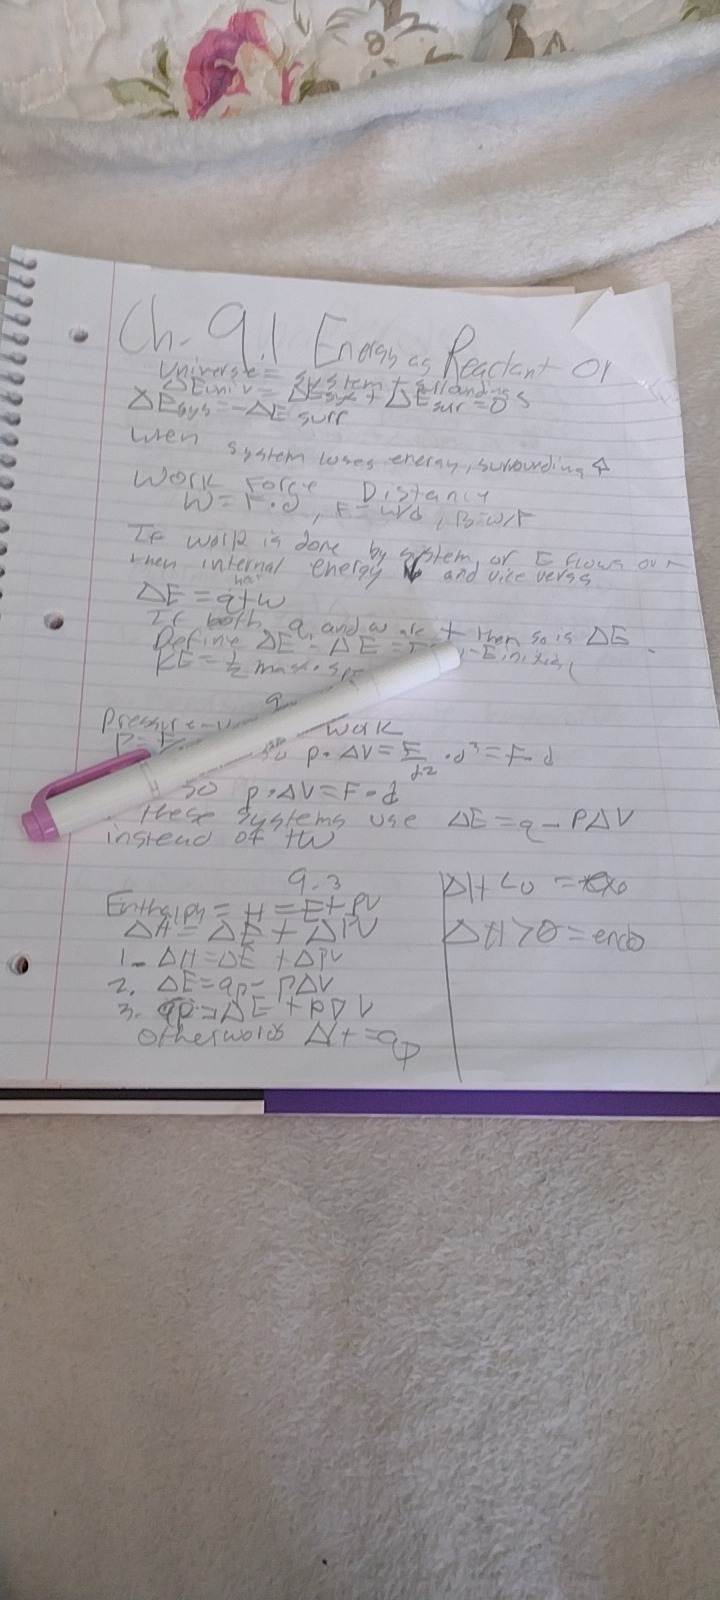 Ch. 9.1 Energy as Reactant or
Universe = system + surroundings
ΔEuniv = ΔEsys + ΔEsur = 0
ΔEsys = -ΔE surr
when system loses energy, surrounding ↑
Work Force Distance
W = F·d, F = w/d, D = w/F
If work is done by system or E flows out
then internal energy ↓ and vice versa
heat
ΔE = q + w
If both q and w are + then so is ΔE.
Define ΔE. ΔE = -Einitial
KE = ½ mass·
9
Pressure-
work
P =
so p·ΔV = F/d2 · d³ = F·d
so p·ΔV = F·d
these systems use ΔE = q - PΔV
instead of +W
9.3
Enthalpy = H = E + PV
ΔH = ΔE + ΔPV
1- ΔH = ΔE + ΔPV
2. ΔE = qp - PΔV
3. qp = ΔE + PΔV
otherwords ΔH = qp
ΔH <0 = exo
ΔH >0 = endo